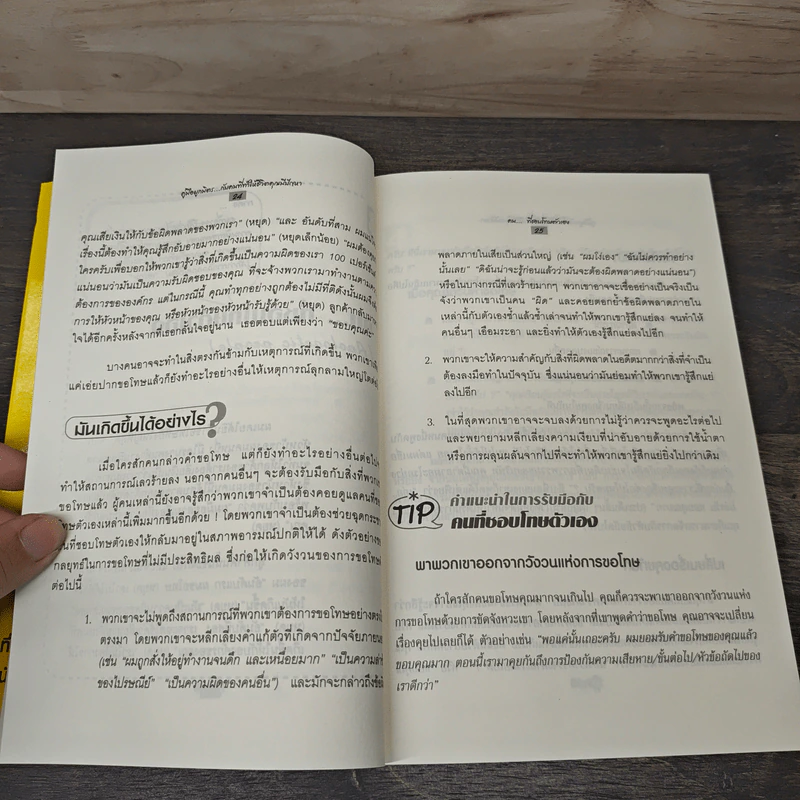 คู่มือผูกมิตร...กับคนที่ทำให้ชีวิตคุณมีปัญหา
24
คุณเสียเงินให้กับข้อผิดพลาดของพวกเรา” (หยุด) “และ อันดับที่สาม ผมแน่ใจ
เรื่องนี้ต้องทำให้คุณรู้สึกอับอายมากอย่างแน่นอน” (หยุดเล็กน้อย) “ผมต้อง
ใครครับเพื่อบอกให้พวกเขารู้ว่าสิ่งที่เกิดขึ้นเป็นความผิดของเรา 100 เปอร์เซ็นต์
แน่นอนว่ามันเป็นความรับผิดชอบของคุณ ที่จะจ้างพวกเรามาทำงานตามความ
ต้องการขององค์กร แต่ในกรณีนี้ คุณทำทุกอย่างถูกต้องไม่มีที่ติดังนั้นผมจึง
การให้หัวหน้าของคุณ หรือหัวหน้าของหัวหน้ารับรู้ด้วย” (หยุด) ลูกค้ากลับมา
ใจได้อีกครั้งหลังจากที่เธอกลั้นใจอยู่นาน เธอตอบแต่เพียงว่า “ขอบคุณค่ะ”
บางคนอาจจะทำในสิ่งตรงกันข้ามกับเหตุการณ์ที่เกิดขึ้น พวกเขา
แค่เอ่ยปากขอโทษแล้วก็ยังทำอะไรอย่างอื่นให้เหตุการณ์ลุกลามใหญ่โต
มันเกิดขึ้นได้อย่างไร?
เมื่อใครสักคนกล่าวคำขอโทษ แต่ก็ยังทำอะไรอย่างอื่นต่อไป
ทำให้สถานการณ์เลวร้ายลง นอกจากคนอื่นๆ จะต้องรับมือกับสิ่งที่พวก
ขอโทษแล้ว ผู้คนเหล่านี้ยังอาจรู้สึกว่าพวกเขาจำเป็นต้องคอยดูแลคนที่
โทษตัวเองเหล่านี้เพิ่มมากขึ้นอีกด้วย ! โดยพวกเขาจำเป็นต้องช่วยฉุดกระชาก
คนที่ชอบโทษตัวเองให้กลับมาอยู่ในสภาพอารมณ์ปกติให้ได้ ดังตัวอย่าง
กลยุทธ์ในการขอโทษที่ไม่มีประสิทธิผล ซึ่งก่อให้เกิดวังวนของการขอโทษ
ต่อไปนี้
1. พวกเขาจะไม่พูดถึงสถานการณ์ที่พวกเขาต้องการขอโทษอย่างตรงไป
ตรงมา โดยพวกเขาจะหลีกเลี่ยงคำแก้ตัวที่เกิดจากปัจจัยภายนอก
(เช่น “ผมถูกสั่งให้อยู่ทำงานจนดึก และเหนื่อยมาก” “เป็นความล่าช้า
ของไปรษณีย์” “เป็นความผิดของคนอื่น”) และมักจะกล่าวถึงข้อ
คน.... ที่ชอบโทษตัวเอง
25
พลาดภายในเสียเป็นส่วนใหญ่ (เช่น “ผมโง่เอง” “ฉันไม่ควรทำอย่าง
นั้นเลย” “ดิฉันน่าจะรู้ก่อนแล้วว่ามันจะต้องผิดพลาดอย่างแน่นอน”)
หรือในบางกรณีที่เลวร้ายมากๆ พวกเขาอาจจะเชื่ออย่างเป็นจริงเป็น
จังว่าพวกเขาเป็นคน “ผิด” และคอยตอกย้ำข้อผิดพลาดภายใน
เหล่านี้กับตัวเองซ้ำแล้วซ้ำเล่าจนทำให้พวกเขารู้สึกแย่ลง จนทำให้
คนอื่นๆ เอือมระอา และยิ่งทำให้ตัวเองรู้สึกแย่ลงไปอีก
2. พวกเขาจะให้ความสำคัญกับสิ่งที่ผิดพลาดในอดีตมากกว่าสิ่งที่จำเป็น
ต้องลงมือทำในปัจจุบัน ซึ่งแน่นอนว่ามันย่อมทำให้พวกเขารู้สึกแย่
ลงไปอีก
3. ในที่สุดพวกเขาอาจจะจบลงด้วยการไม่รู้ว่าควรจะพูดอะไรต่อไป
และพยายามหลีกเลี่ยงความเงียบที่น่าอับอายด้วยการใช้น้ำตา
หรือการผลุนผลันจากไปที่จะทำให้พวกเขารู้สึกแย่ยิ่งไปกว่าเดิม
TIP คำแนะนำในการรับมือกับ
คนที่ชอบโทษตัวเอง
พาพวกเขาออกจากวังวนแห่งการขอโทษ
ถ้าใครสักคนขอโทษคุณมากจนเกินไป คุณก็ควรจะพาเขาออกจากวังวนแห่ง
การขอโทษด้วยการขัดจังหวะเขา โดยหลังจากที่เขาพูดคำว่าขอโทษ คุณอาจจะเปลี่ยน
เรื่องคุยไปเลยก็ได้ ตัวอย่างเช่น “พอแค่นั้นเถอะครับ ผมยอมรับคำขอโทษของคุณแล้ว
ขอบคุณมาก ตอนนี้เรามาคุยกันถึงการป้องกันความเสียหาย/ขั้นต่อไป/หัวข้อถัดไปของ
เราดีกว่า”